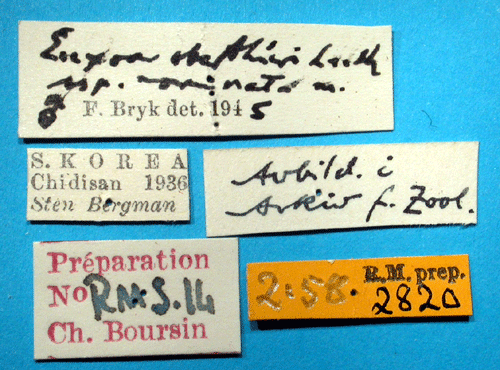 Euxoa
ssp. nominata m.
♂ F. Bryk det. 1945
S. KOREA
Chidisan 1936
Sten Bergman
Avbild. i
Arkiv f. Zool.
Préparation
No RM:S.14
Ch. Boursin
2:58. R.M. prep.
2820